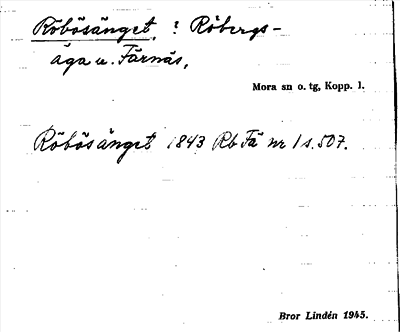 Röbösänget, : Röbergs-
äga u. Färnäs,
Mora sn o. tg, Kopp. l.
Röbösänget 1843 Rb Fä nr 1 s. 507.
Bror Lindén 1945.